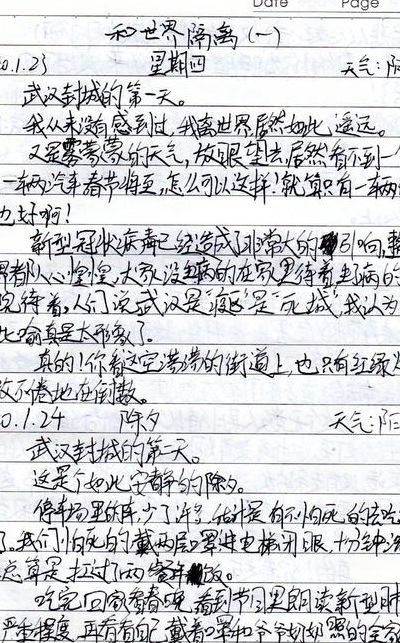 Date Page
和世界隔离(一)
0.1.23 星期四 天气:阴
武汉封城的第一天。
我从来没有感到过,我离世界居然如此遥远。
又是雾蒙蒙的天气,放眼望去居然看不到一
一辆汽车春节将至,怎么可以这样!就算只有一辆
也好啊!
新型冠状病毒已经造成了非常大的引响,整
界都人心惶惶,大家没生病的在家里待着生病的
院待着,人们说武汉是"疫区"是"死城",我认为
比喻真是太形象了。
真的!你看这空荡荡的街道上,也只有红绿
孜不倦地在倒数。
0.1.24 除夕 天气:阴
武汉封城的第二天。
这是个如此安静的除夕。
停车场里的车少了许多,估计是有不怕死的去吃
了。我们怕死的戴两层口罩进电梯闭眼,十分钟
总算是拉过了
吃完回家看春晚,看到节目里朗读新型肺
严重程度,再看看自己戴着口罩和爷爷奶奶照的全家